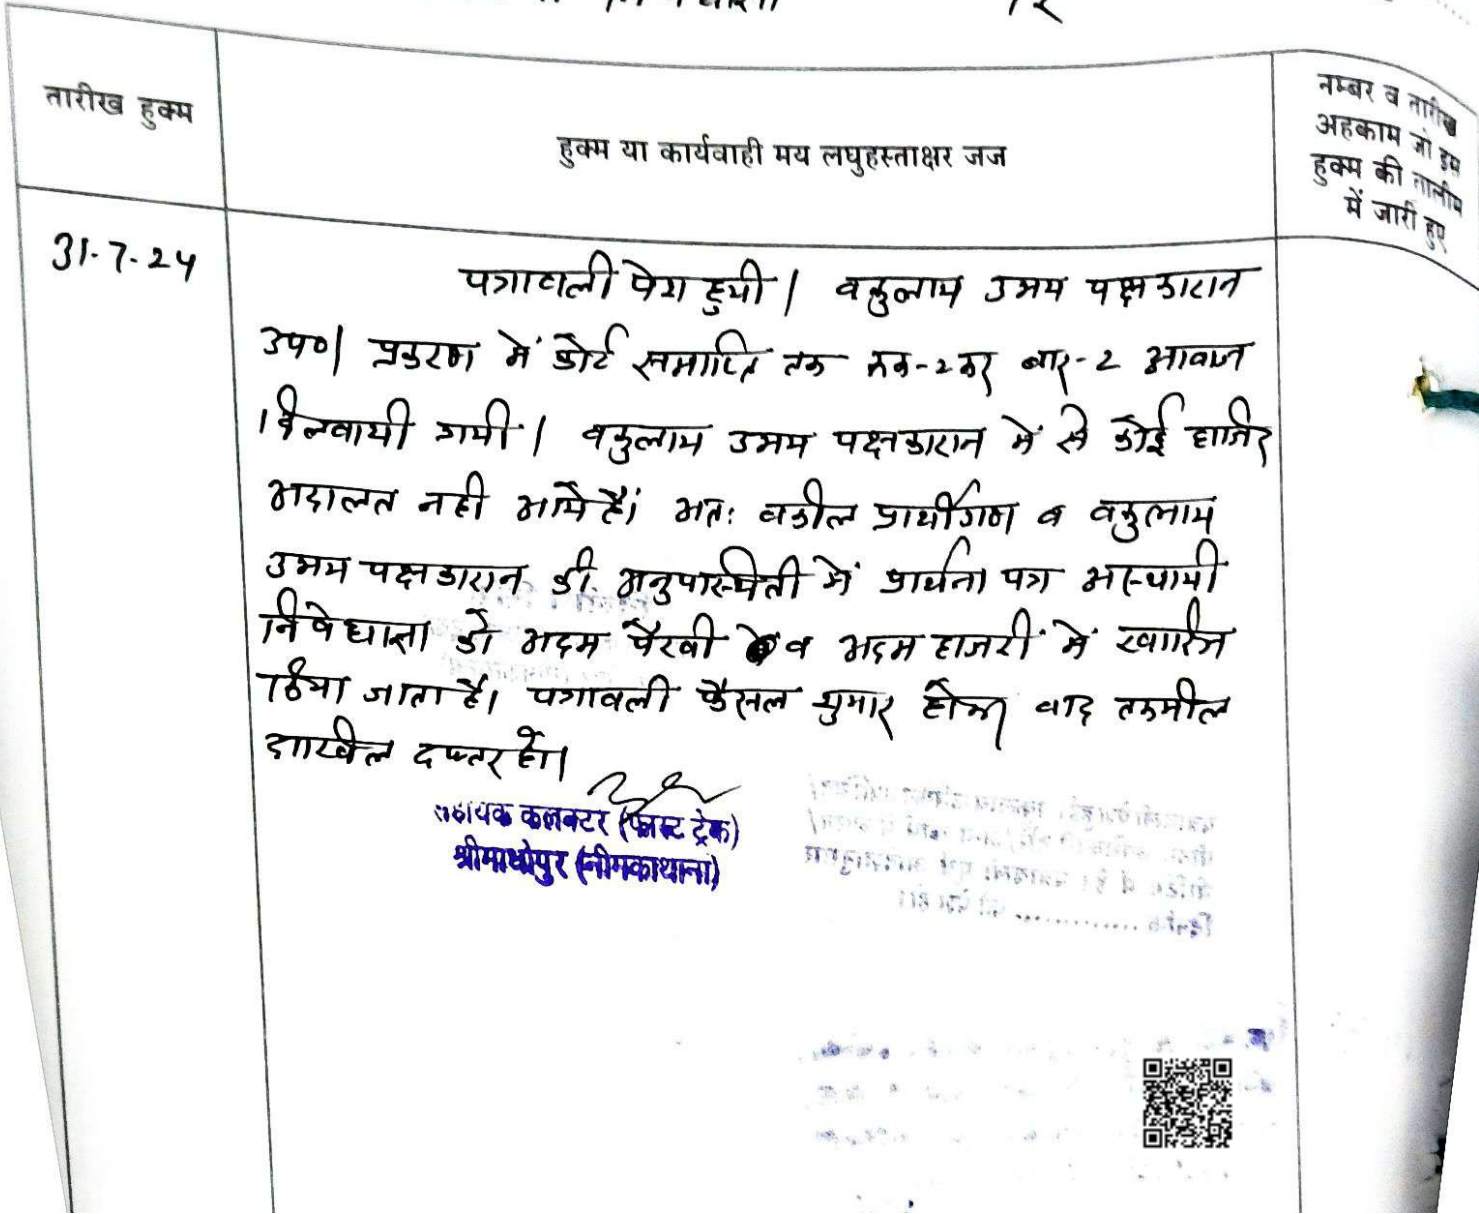 तारीख हुक्म
हुक्म या कार्यवाही मय लघुहस्ताक्षर जज
नम्बर व तारीख
अहकाम जो इस
हुक्म की तालीम
में जारी हुए
31-7-24
पत्रावली पेश हुयी। वकुलाय उभय पक्षकारान
उप०। प्रकरण में कोर्ट समाप्ति तक रूक-2 कर बार-2 आवाज
दिलवायी गयी। वकुलाय उभय पक्षकारान में से कोई हाजिर
अदालत नही आये हैं। अतः वकील प्रार्थीगण व वकुलाय
उभय पक्षकारान की अनुपस्थिती में प्रार्थना पत्र अस्थायी
निषेधाज्ञा को अदम पैरवी व अदम हाजरी में खारिज
किया जाता है। पत्रावली फैसल शुमार होकर बाद तकमील
दाखिल दफ्तर हो।
सहायक कलक्टर (फास्ट ट्रेक)
श्रीमाधोपुर (नीमकाथाना)